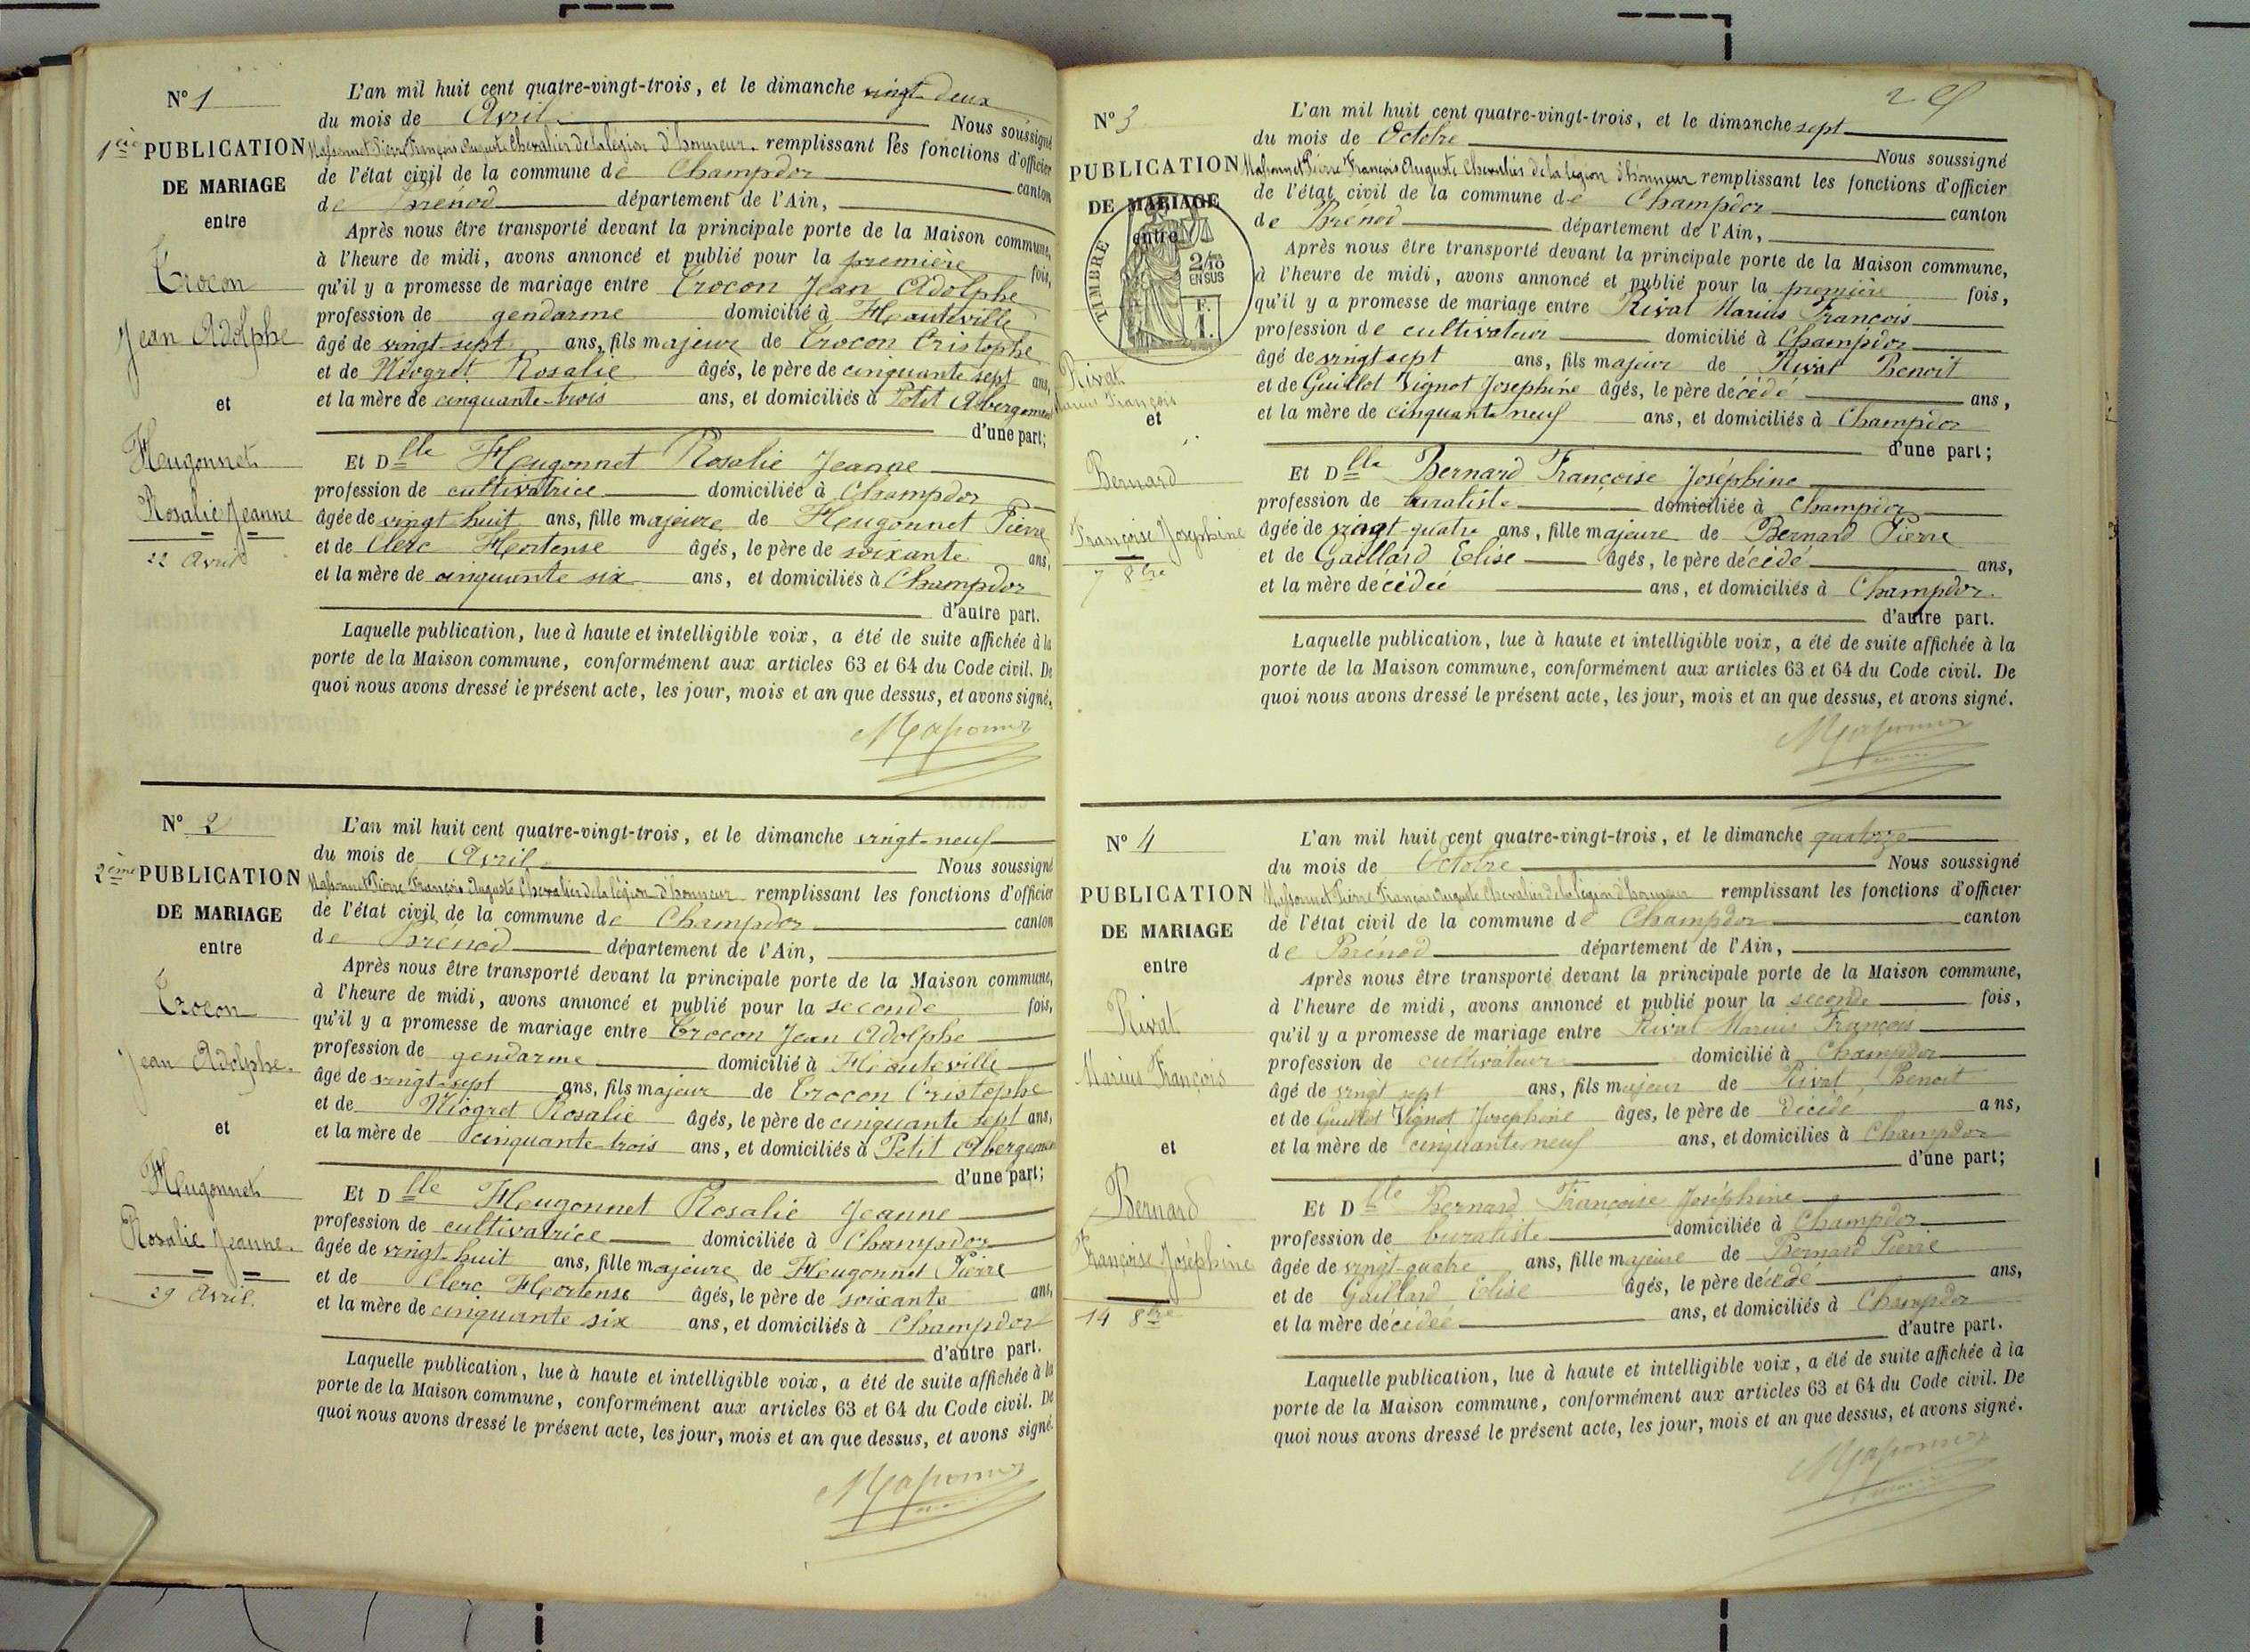 N° 1
1ère PUBLICATION
DE MARIAGE
entre
Crocon
Jean Adolphe
et
Heugonnet
Rosalie Jeanne
22 Avril
L'an mil huit cent quatre-vingt-trois, et le dimanche vingt-deux
du mois de Avril Nous soussigné
Massonnet Pierre François Auguste Chevalier de la légion d'honneur remplissant les fonctions d'officier
de l'état civil de la commune de Champdor canton
de Brénod département de l'Ain,
Après nous être transporté devant la principale porte de la Maison commune,
à l'heure de midi, avons annoncé et publié pour la première fois,
qu'il y a promesse de mariage entre Crocon Jean Adolphe
profession de gendarme domicilié à Hauteville
âgé de vingt-sept ans, fils majeur de Crocon Cristophe
et de Niogret Rosalie âgés, le père de cinquante sept ans,
et la mère de cinquante-trois ans, et domiciliés à Petit Abergement
d'une part;
Et Dlle Heugonnet Rosalie Jeanne
profession de cultivatrice domiciliée à Champdor
âgée de vingt-huit ans, fille majeure de Heugonnet Pierre
et de Clerc Hortense âgés, le père de soixante ans,
et la mère de cinquante six ans, et domiciliés à Champdor
d'autre part.
Laquelle publication, lue à haute et intelligible voix, a été de suite affichée à la
porte de la Maison commune, conformément aux articles 63 et 64 du Code civil. De
quoi nous avons dressé le présent acte, les jour, mois et an que dessus, et avons signé.
Massonnet
N° 2
2ème PUBLICATION
DE MARIAGE
entre
Crocon
Jean Adolphe.
et
Heugonnet
Rosalie Jeanne.
29 Avril.
L'an mil huit cent quatre-vingt-trois, et le dimanche vingt-neuf
du mois de Avril Nous soussigné
Massonnet Pierre François Auguste Chevalier de la légion d'honneur remplissant les fonctions d'officier
de l'état civil de la commune de Champdor canton
de Brénod département de l'Ain,
Après nous être transporté devant la principale porte de la Maison commune,
à l'heure de midi, avons annoncé et publié pour la seconde fois,
qu'il y a promesse de mariage entre Crocon Jean Adolphe
profession de gendarme domicilié à Hauteville
âgé de vingt-sept ans, fils majeur de Crocon Cristophe
et de Niogret Rosalie âgés, le père de cinquante sept ans,
et la mère de cinquante-trois ans, et domiciliés à Petit Abergement
d'une part;
Et Dlle Heugonnet Rosalie Jeanne
profession de cultivatrice domiciliée à Champdor
âgée de vingt-huit ans, fille majeure de Heugonnet Pierre
et de Clerc Hortense âgés, le père de soixante ans,
et la mère de cinquante six ans, et domiciliés à Champdor
d'autre part.
Laquelle publication, lue à haute et intelligible voix, a été de suite affichée à la
porte de la Maison commune, conformément aux articles 63 et 64 du Code civil. De
quoi nous avons dressé le présent acte, les jour, mois et an que dessus, et avons signé.
Massonnet
N° 3
PUBLICATION
DE MARIAGE
entre
TIMBRE
2/10
EN SUS
F.
1.
Rivat
Marius François
et
Bernard
Françoise Josephine
7 8bre
L'an mil huit cent quatre-vingt-trois, et le dimanche sept
du mois de Octobre Nous soussigné
Massonnet Pierre François Auguste Chevalier de la légion d'honneur remplissant les fonctions d'officier
de l'état civil de la commune de Champdor canton
de Brénod département de l'Ain,
Après nous être transporté devant la principale porte de la Maison commune,
à l'heure de midi, avons annoncé et publié pour la première fois,
qu'il y a promesse de mariage entre Rivat Marius François
profession de cultivateur domicilié à Champdor
âgé de vingt sept ans, fils majeur de Rivat Benoit
et de Guillot Vignot Josephine âgés, le père décédé ans,
et la mère de cinquante neuf ans, et domiciliés à Champdor
d'une part;
Et Dlle Bernard Françoise Joséphine
profession de buraliste domiciliée à Champdor
âgée de vingt-quatre ans, fille majeure de Bernard Pierre
et de Gaillard Elise âgés, le père décédé ans,
et la mère décédée ans, et domiciliés à Champdor.
d'autre part.
Laquelle publication, lue à haute et intelligible voix, a été de suite affichée à la
porte de la Maison commune, conformément aux articles 63 et 64 du Code civil. De
quoi nous avons dressé le présent acte, les jour, mois et an que dessus, et avons signé.
Massonnet
N° 4
PUBLICATION
DE MARIAGE
entre
Rivat
Marius François
et
Bernard
Françoise Joséphine
14 8bre
L'an mil huit cent quatre-vingt-trois, et le dimanche quatorze
du mois de Octobre Nous soussigné
Massonnet Pierre François Auguste Chevalier de la légion d'honneur remplissant les fonctions d'officier
de l'état civil de la commune de Champdor canton
de Brénod département de l'Ain,
Après nous être transporté devant la principale porte de la Maison commune,
à l'heure de midi, avons annoncé et publié pour la seconde fois,
qu'il y a promesse de mariage entre Rivat Marius François
profession de cultivateur domicilié à Champdor
âgé de vingt sept ans, fils majeur de Rivat Benoit
et de Guillot Vignot Josephine âgés, le père de décédé ans,
et la mère de cinquante neuf ans, et domiciliés à Champdor
d'une part;
Et Dlle Bernard Françoise Joséphine
profession de buraliste domiciliée à Champdor
âgée de vingt-quatre ans, fille majeure de Bernard Pierre
et de Gaillard Elise âgés, le père décédé ans,
et la mère décédée ans, et domiciliés à Champdor
d'autre part.
Laquelle publication, lue à haute et intelligible voix, a été de suite affichée à la
porte de la Maison commune, conformément aux articles 63 et 64 du Code civil. De
quoi nous avons dressé le présent acte, les jour, mois et an que dessus, et avons signé.
Massonnet